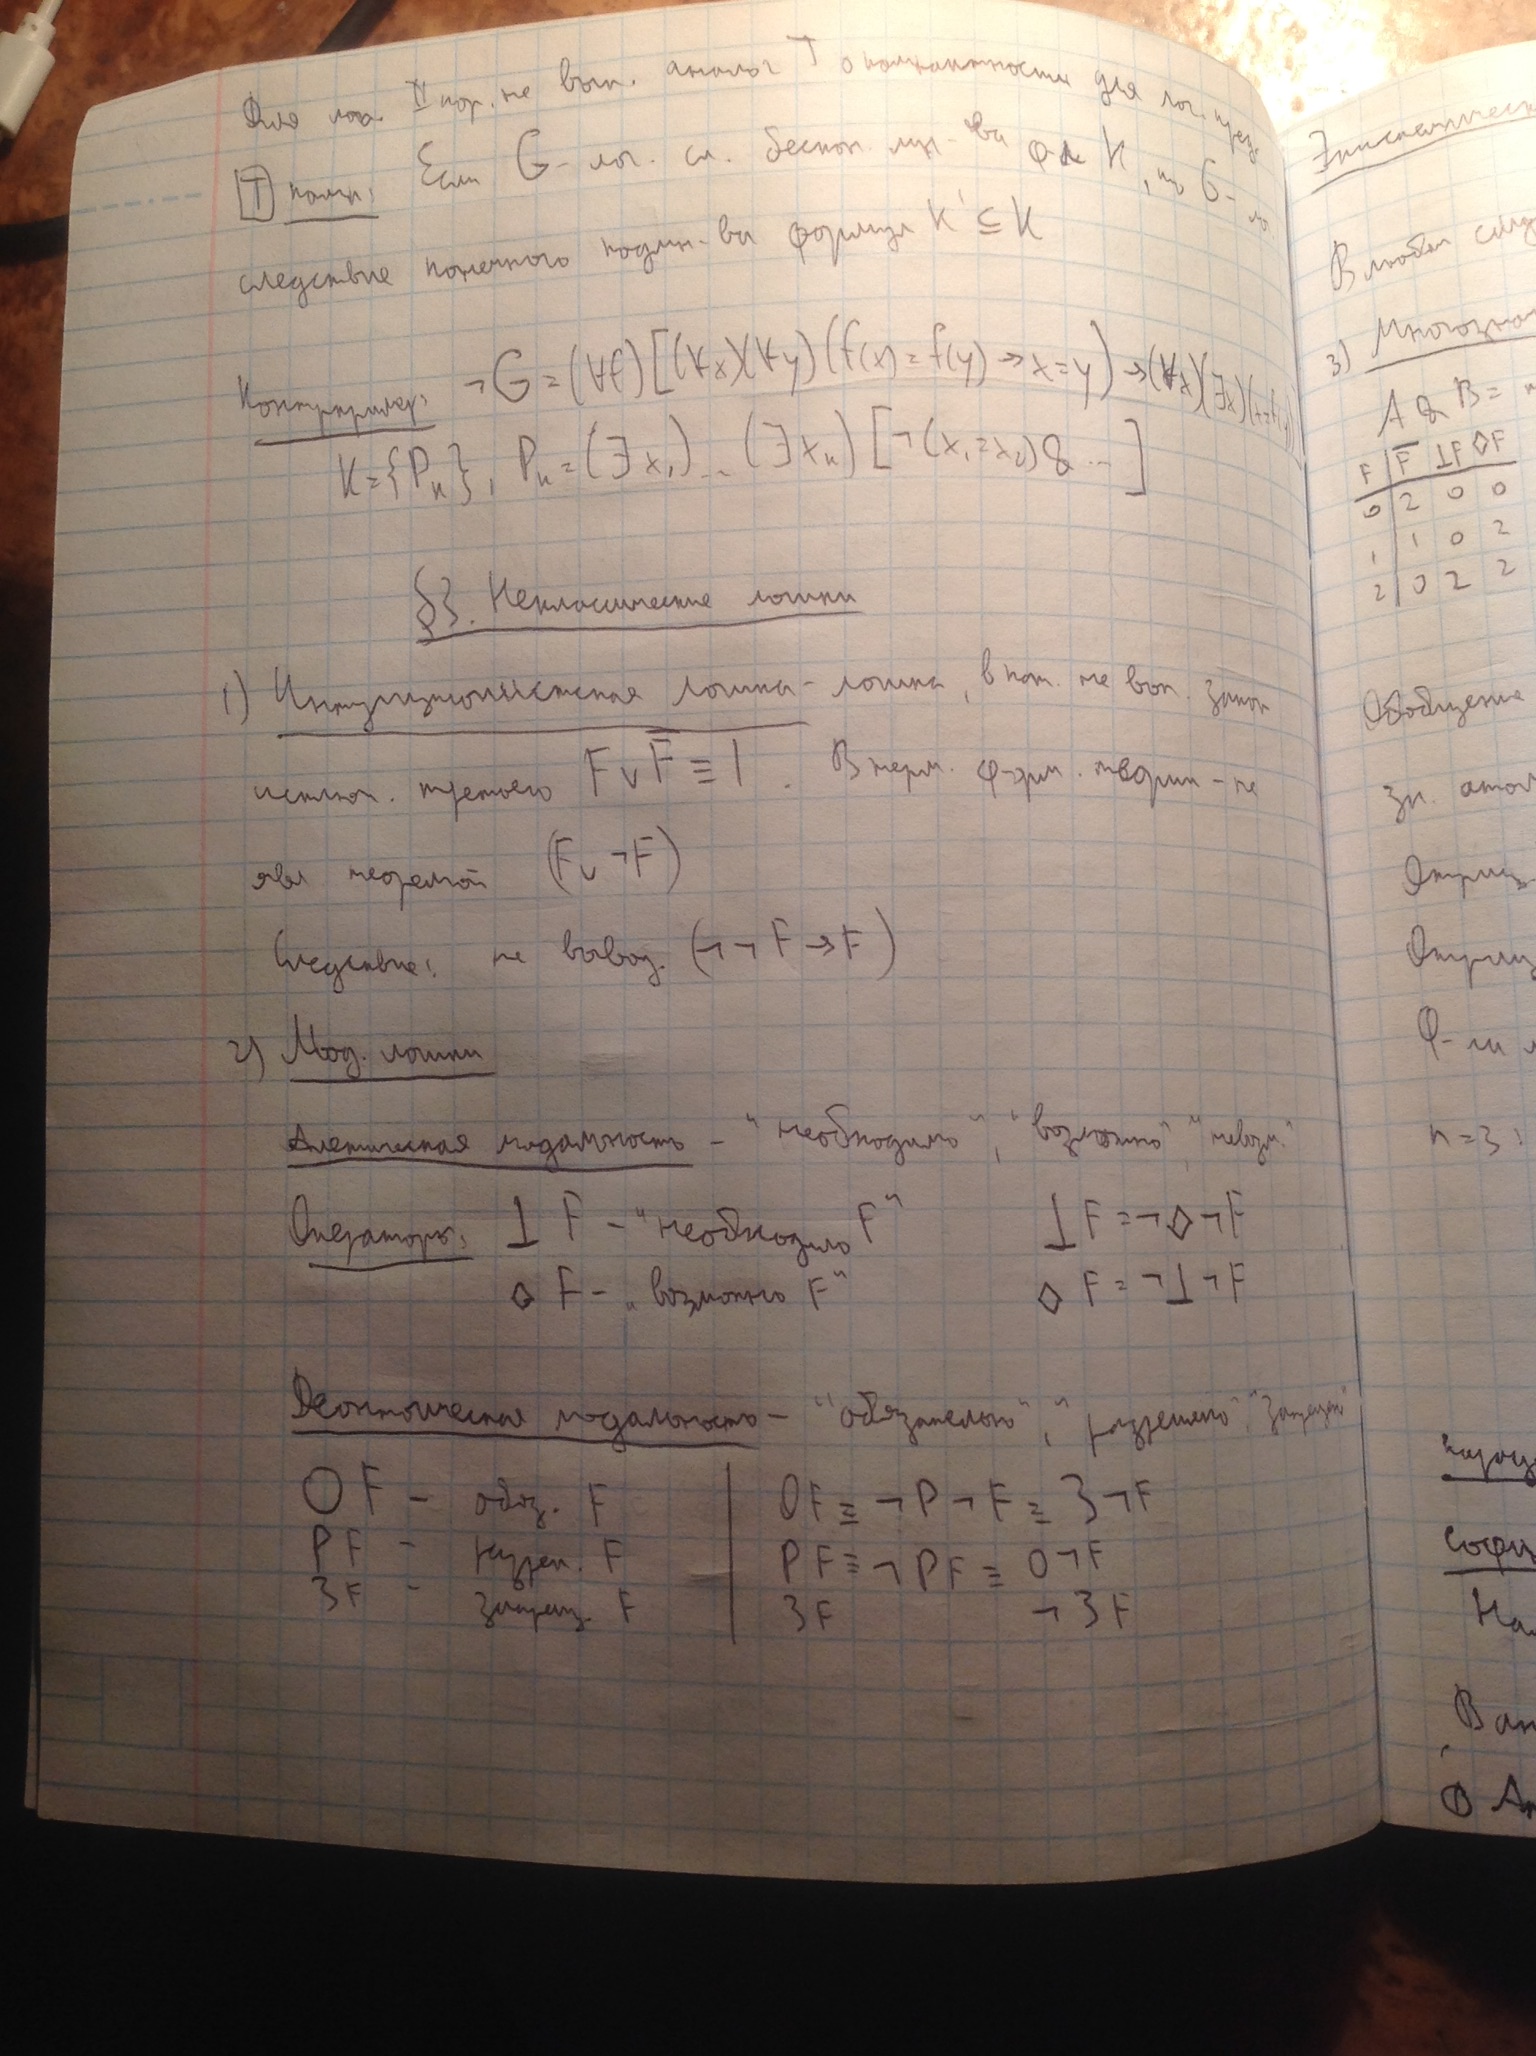 Для лог. II пор. не вып. аналог T о компактности для лог. пред.
T комп: Если G - лог. сл. бескон. мн-ва ф-л K, то G - ло.
следствие конечного подмн-ва формул K' ⊆ K
Контрпример: ¬G = (∀f)[(∀x)(∀y)(f(x)=f(y) → x=y) → (∀y)(∃x)(y=f(x))]
K={Pₙ}, Pₙ=(∃x₁)...(∃xₙ)[¬(x₁=x₂)& ...]
§3. Неклассические логики
1) Интуиционистская логика - логика, в кот. не вып. закон
исключ. третьего F∨F̅ ≡ 1. В терм. ф-рм. теории - не
явл теоремой (F∨¬F)
Следствие: не вывод. (¬¬F→F)
2) Мод. логики
Алетическая модальность - "необходимо", "возможно", "невозм."
Операторы: ⊥ F - "необходимо F" ⊥ F = ¬◇¬F
◇ F - "возможно F" ◇ F = ¬⊥¬F
Деонтическая модальность - "обязательно", "разрешено", "запрещено"
OF - обяз. F OF ≡ ¬P¬F ≡ З¬F
PF - разреш. F PF ≡ ¬PF ≡ O¬F
ЗF - запрещ. F ЗF ¬ЗF
В любой
3)
A & B =
F F̅ ⊥F ◇F
0 2 0 0
1 1 0 2
2 0 2 2
Обобщение
Зн. атом
Отриц.
Отриц
Ф-ли
n=3: